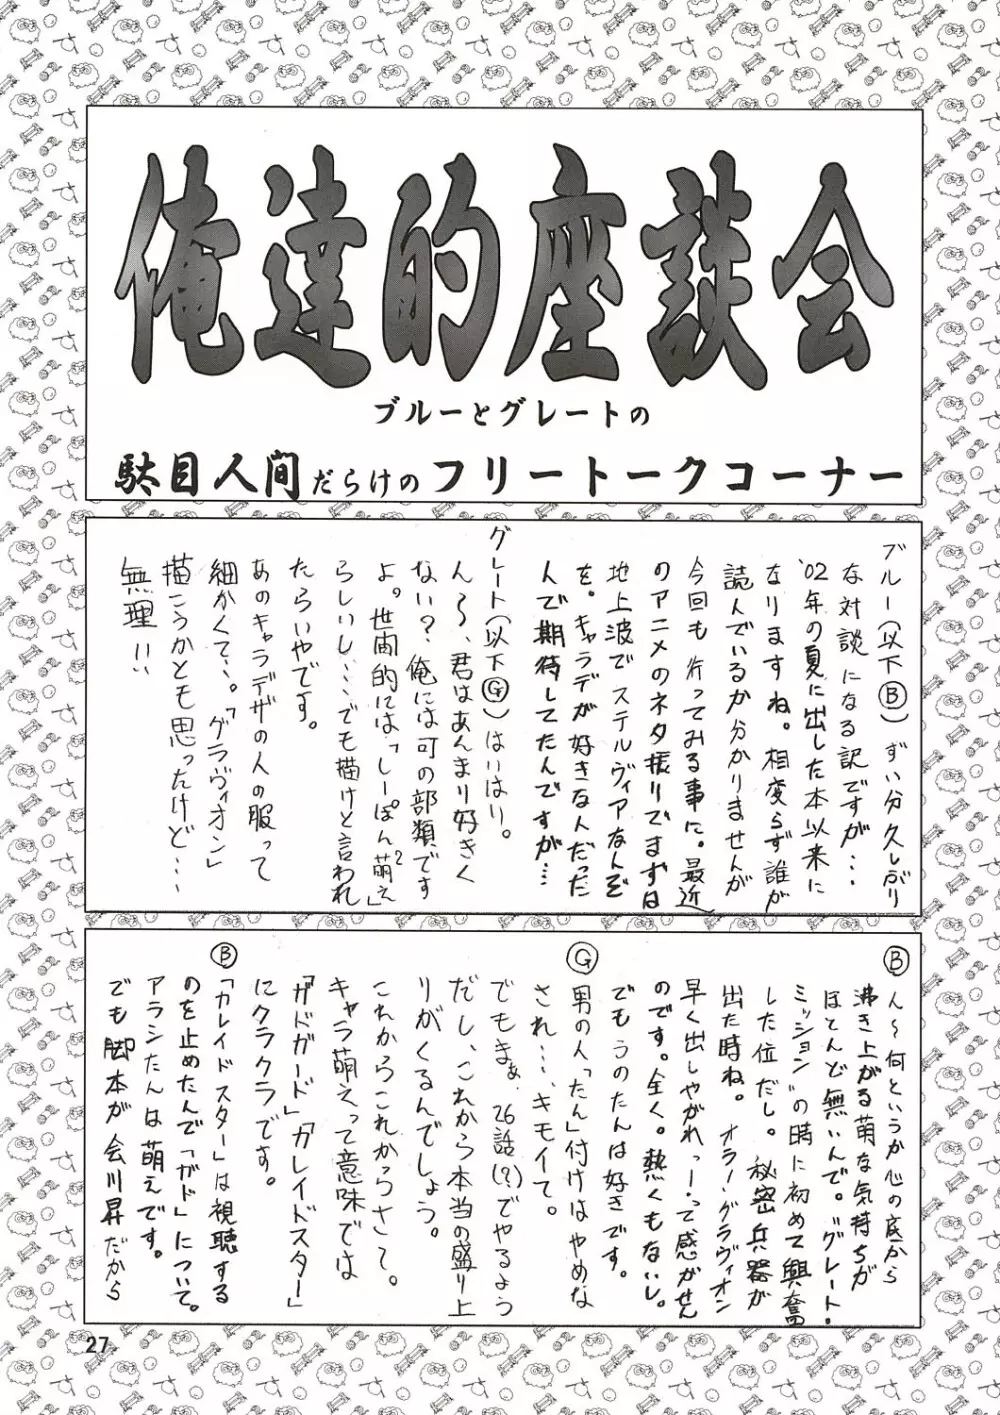 俺達的座談会
ブルーとグレートの
駄目人間だらけのフリートークコーナー
ブルー(以下Ⓑ)ずい分久しぶり
な対談になる訳ですが…
'02年の夏に出した本以来に
なりますね。相変らず誰が
読んでいるか分かりませんが
今回も行ってみる事に。最近
のアニメのネタ振りでまずは
地上波でステルヴィアなんぞ
を。キャラデが好きなんだった
んで期待してたんですが…
グレート(以下Ⓖ)はいはい。
ん〜、君はあんまり好きく
ない?俺には可の部類です
よ。世間的には「しーぽん萌え」
らしいし…でも描けと言われ
たらいやです。
あのキャラデザの人の服って
細かくて…。「グラヴィオン」
描こうかとも思ったけど…
無理!!
Ⓑ
ん〜何というか心の底から
沸き上がる萌な気持ちが
ほとんど無いんで。"グレート・
ミッション"の時に初めて興奮
した位だし。秘密兵器が
出た時ね。オラ!グラヴィオン
早く出しやがれっー!って感がせん
のです。全く。熱くもないし。
でもりのたんは好きです。
Ⓖ
男の人「たん」付けはやめな
され…、キモイて。
でもまぁ、26話(?)でやるよう
だし、これから本当の盛り上
りがくるんでしょう。
これからこれかっらさて。
キャラ萌えって意味では
「ガドガード」「カレイドスター」
にクラクラです。
Ⓑ
「カレイドスター」は視聴する
のを止めたんで「ガド」について。
アラシたんは萌えです。
でも脚本が会川昇だから
27